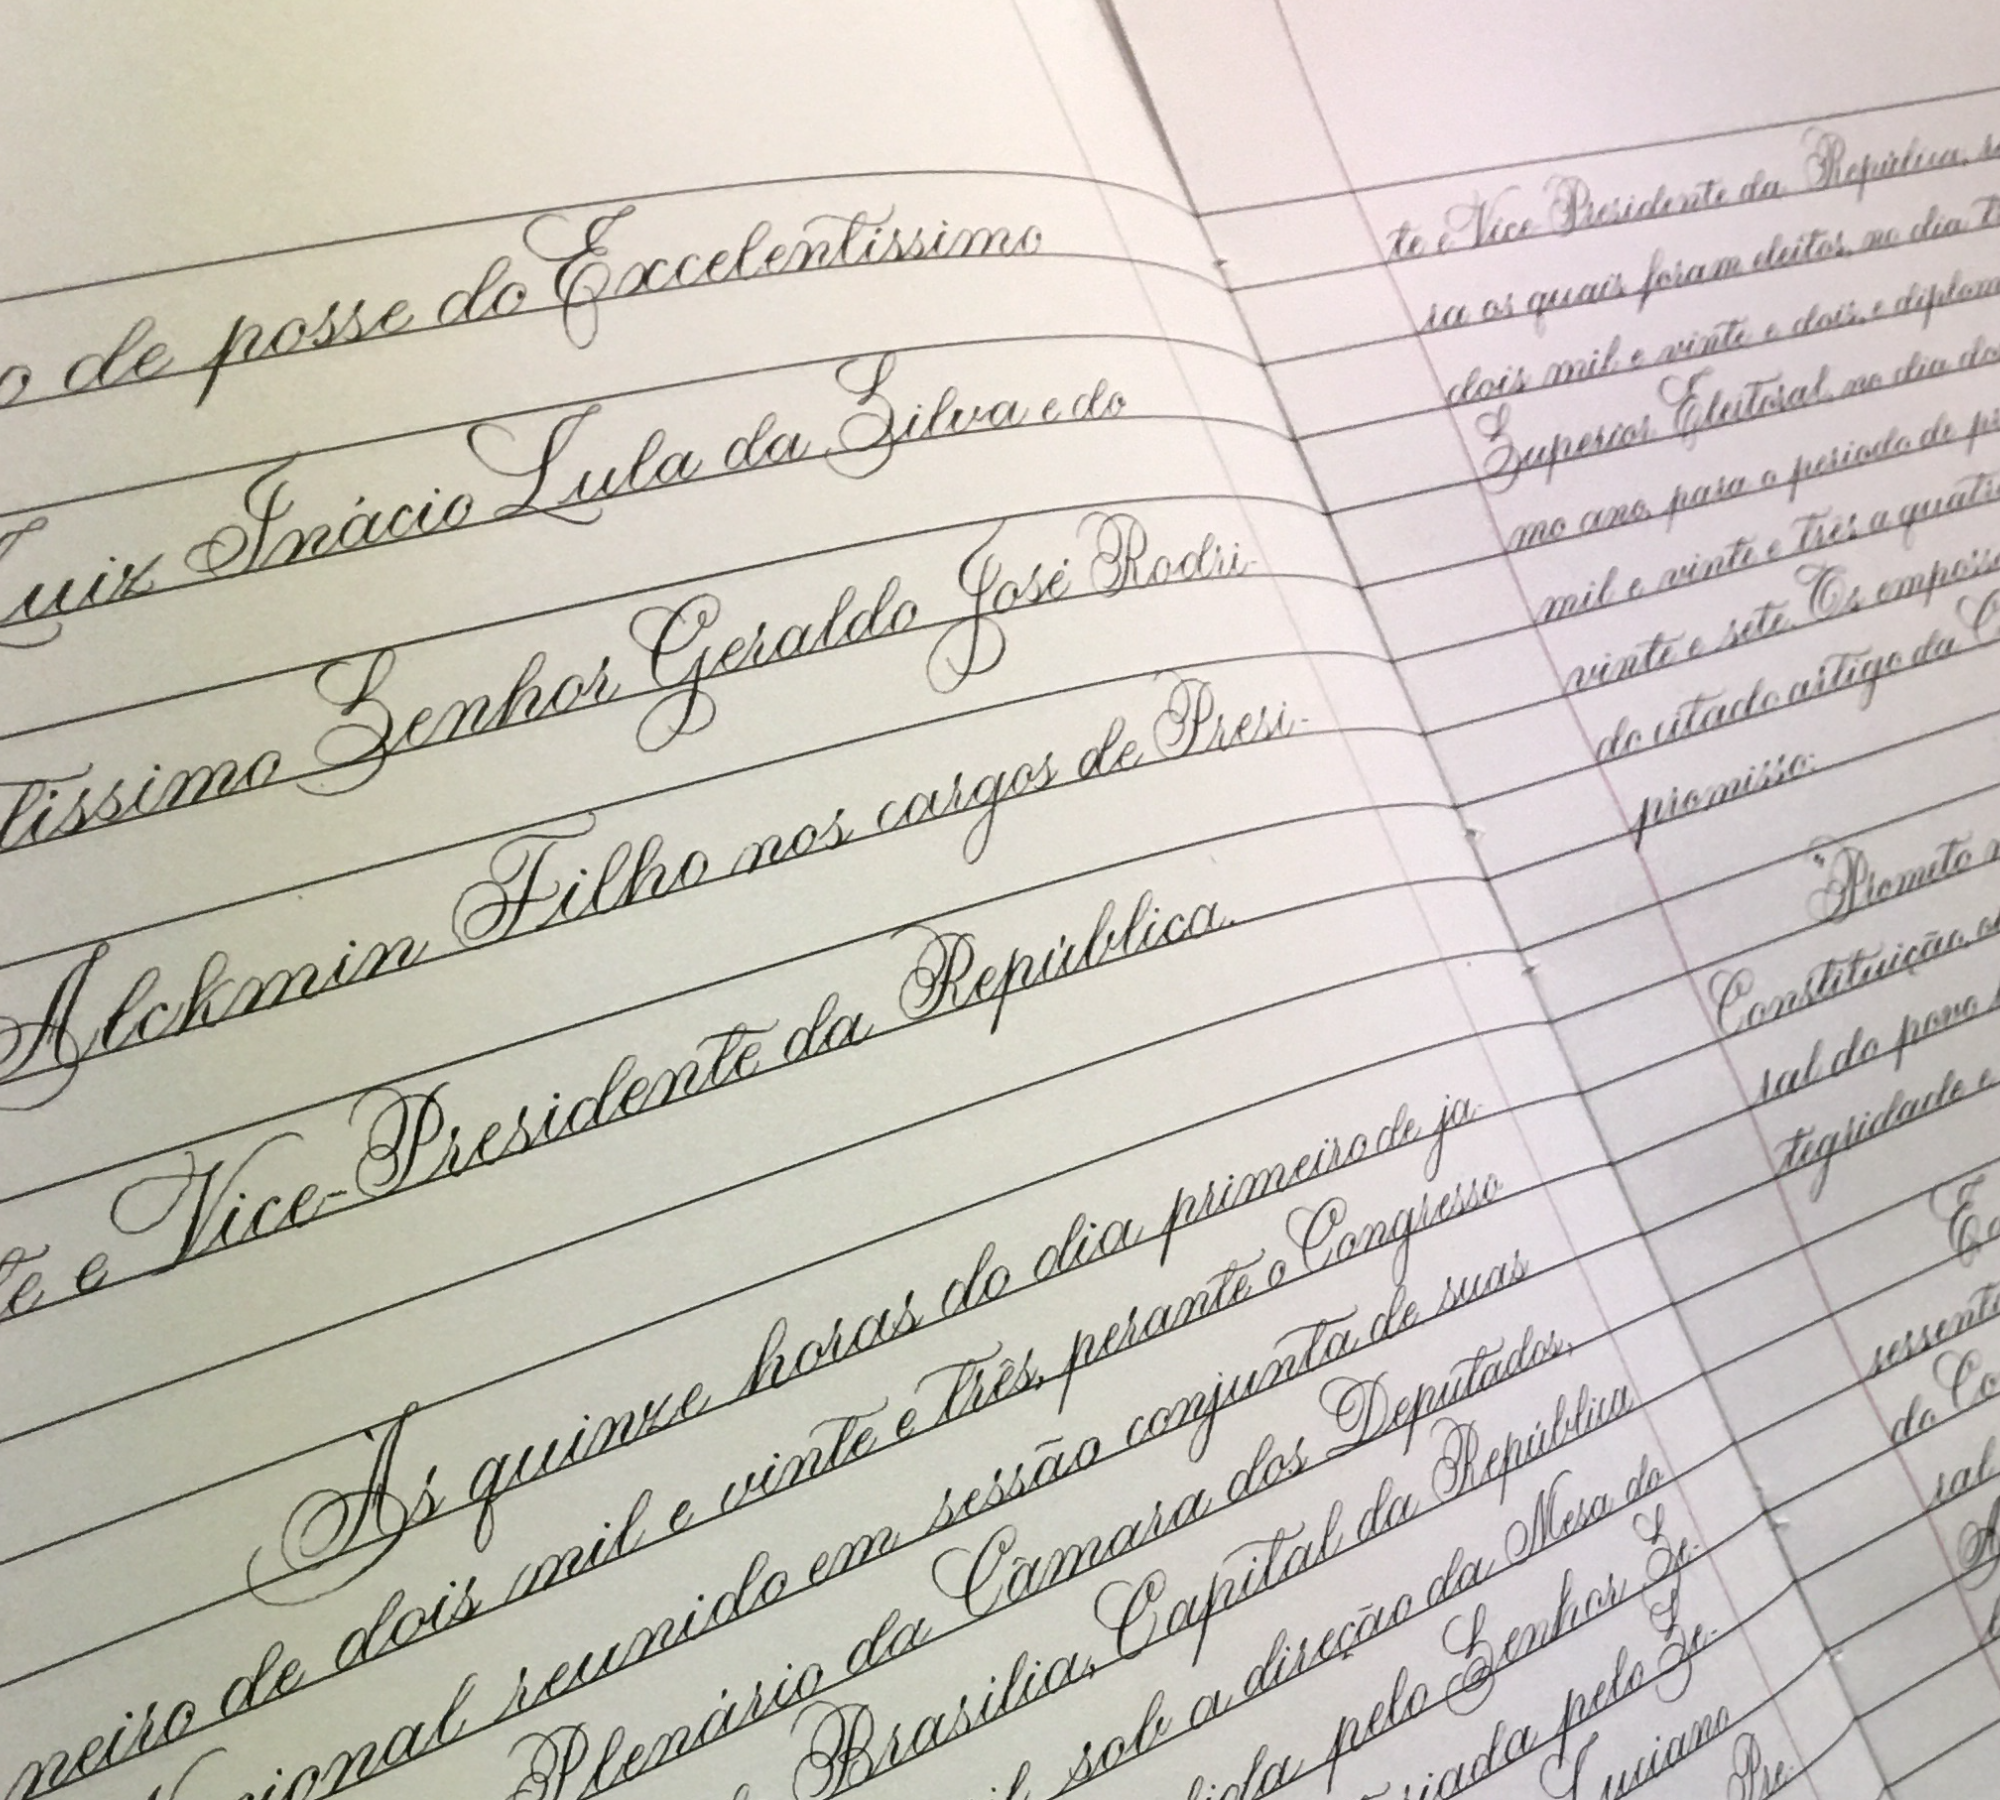 o de posse do Excelentíssimo
Luiz Inácio Lula da Silva e do
tíssimo Senhor Geraldo José Rodri-
Alckmin Filho nos cargos de Presi-
te e Vice-Presidente da República.
Às quinze horas do dia primeiro de ja-
neiro de dois mil e vinte e três, perante o Congresso
cional reunido em sessão conjunta de suas
Plenário da Câmara dos Deputados,
Brasília, Capital da República
sob a direção da Mesa do
dida pelo Senhor Se-
riada pelo Se-
Luciano
Pre-
te e Vice-Presidente da República,
ra os quais foram eleitos, no dia
dois mil e vinte e dois, e diplom
Superior Eleitoral, no dia do
mo ano, para o período de pr
mil e vinte e três a quatr
vinte e sete. Os emposs
do citado artigo da C
promisso:
"Prometo
Constituição, o
ral do povo
tegridade e
sessent
do Co
ral